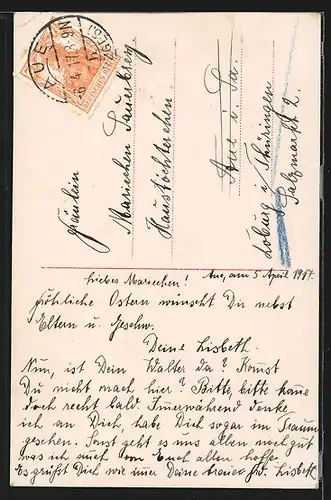 AUE
(ERZGEB)
6.4.17. 8-9N
DEUTSCHES REICH
Fräulein
Mariechen Sauerbrey
Haustöchterchen
Aue i. Sa.
Coburg i. Thüringen
Salzmarkt 2.
Liebes Mariechen! Aue, am 5 April 1917.
Fröhliche Ostern wünscht Dir nebst
Eltern u. Geschw.
Deine Lisbeth.
Nun, ist Dein Walter da? Kommst
Du nicht mach hier? Bitte, bitte komme
doch recht bald. Immerwährend denke
ich an Dich, habe Dich sogar im Traum
gesehen. Sonst geht es uns allen noch gut
was ich auch von Euch allen hoffe.
Es grüßt Dich wie immer Deine treue Lisbeth